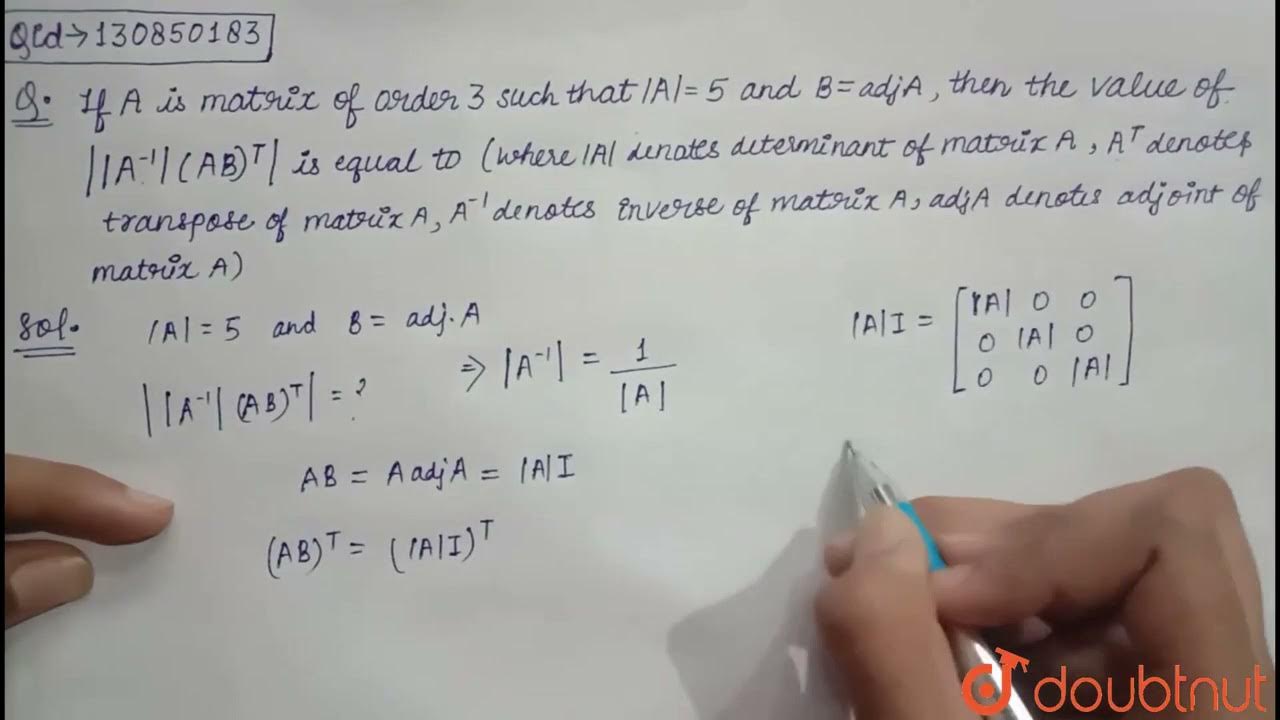 QId→130850183
Q. If A is matrix of order 3 such that |A| = 5 and B = adj A, then the value of
||A⁻¹| (AB)ᵀ| is equal to (where |A| denotes determinant of matrix A, Aᵀ denotes
transpose of matrix A, A⁻¹ denotes inverse of matrix A, adj A denotes adjoint of
matrix A)
Sol. |A| = 5 and B = adj. A
||A⁻¹| (AB)ᵀ| = ?
⇒ |A⁻¹| = 1/|A|
AB = A adj A = |A| I
(AB)ᵀ = (|A| I)ᵀ
|A| I = [ |A| 0 0
0 |A| 0
0 0 |A| ]
doubtnut